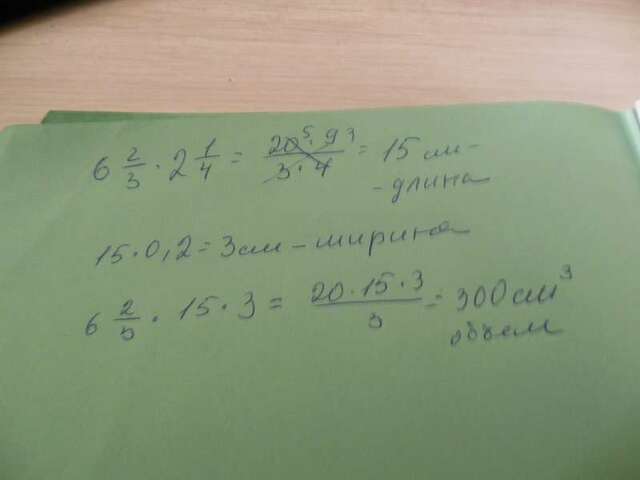 6 2/3 · 2 1/4 = 20⁵ · 9³ / 3 · 4 = 15 см -
- длина
15 · 0,2 = 3 см - ширина
6 2/3 · 15 · 3 = 20 · 15 · 3 / 3 = 300 см³
объем